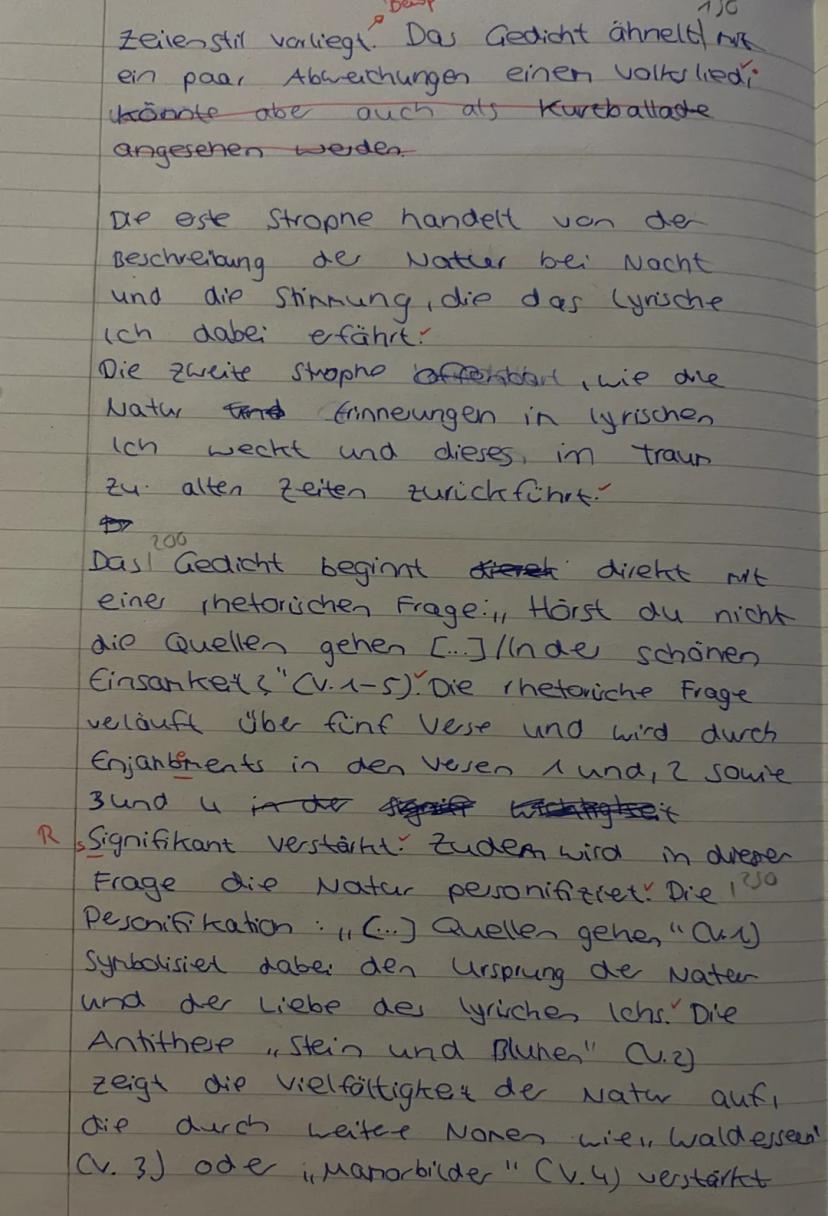 Bsp
150
Zeilenstil vorliegt. Das Gedicht ähnelt mit
ein paar Abweichungen einem Volkslied,
könnte aber auch als Kurzballade
angesehen werden.
Die erste Strophe handelt von der
Beschreibung der Natur bei Nacht
und die Stimmung, die das Lyrische
Ich dabei erfährt.
Die zweite Strophe offenbart, wie die
Natur und Erinnerungen in lyrischen
Ich weckt und dieses, im Traum
zu alten Zeiten zurückführt.
200
Das Gedicht beginnt direkt mit
einer rhetorischen Frage: „Hörst du nicht
die Quellen gehen [...] / In der schönen
Einsamkeit?" (V. 1-5). Die rhetorische Frage
verläuft über fünf Verse und wird durch
Enjambements in den Versen 1 und, 2 sowie
3 und 4 in der Wichtigkeit
R s Signifikant verstärkt. Zudem wird in dieser
Frage die Natur personifiziert. Die 250
Personifikation: „[...] Quellen gehen" (V. 1)
Symbolisiert dabei den Ursprung der Natur
und der Liebe des lyrischen Ichs. Die
Antithese „Stein und Blumen" (V. 2)
zeigt die Vielfältigkeit der Natur auf,
die durch weitere Nomen wie „Waldesseen"
(V. 3) oder „Mamorbilder" (V. 4) verstärkt